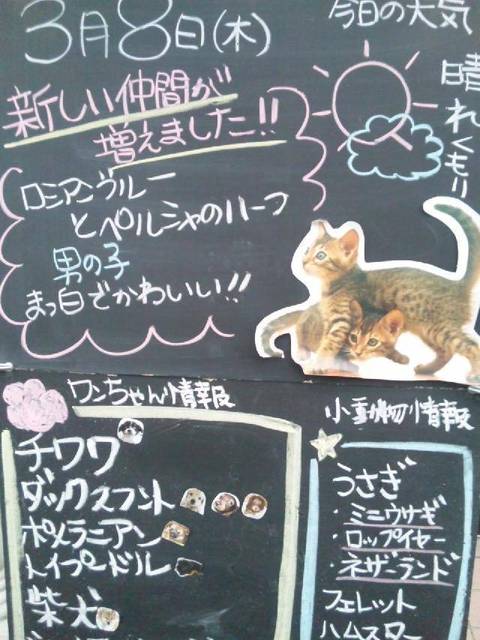 3月8日(木)
今日の天気
晴れくもり
新しい仲間が
増えました!!
ロシアンブルー
とペルシャのハーフ
男の子
まっ白でかわいい!!
ワンちゃん情報
チワワ
ダックスフント
ポメラニアン
トイプードル
柴犬
小動物情報
うさぎ
・ミニウサギ
・ロップイヤー
・ネザーランド
フェレット
ハムスター